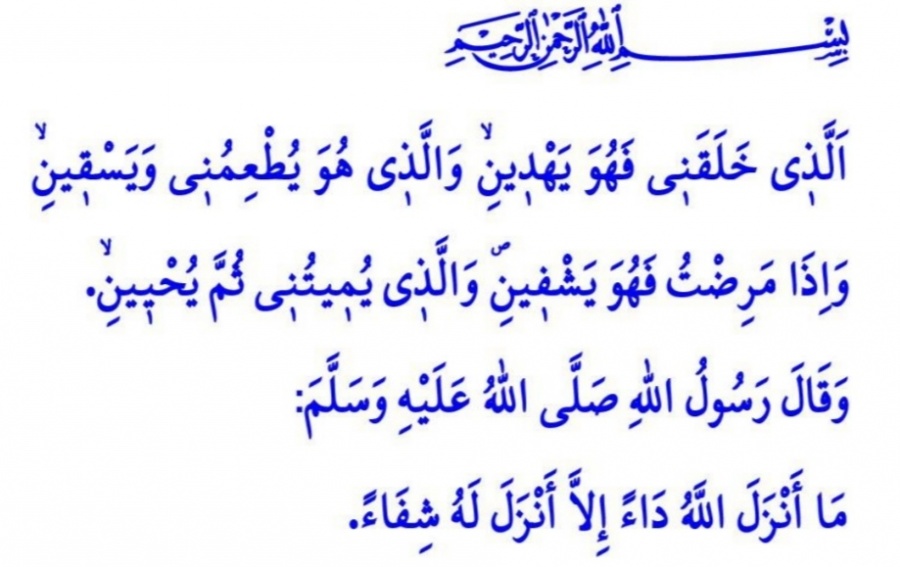 بِسْمِ اللّٰهِ الرَّحْمٰنِ الرَّحِيمِ
اَلَّذ۪ى خَلَقَن۪ى فَهُوَ يَهْد۪ينِۙ وَالَّذ۪ى هُوَ يُطْعِمُن۪ى وَيَسْق۪ينِۙ
وَاِذَا مَرِضْتُ فَهُوَ يَشْف۪ينِۖ وَالَّذ۪ى يُم۪يتُن۪ى ثُمَّ يُحْي۪ينِۙ.
وَقَالَ رَسُولُ اللّٰهِ صَلَّى اللّٰهُ عَلَيْهِ وَسَلَّمَ:
مَا أَنْزَلَ اللَّهُ دَاءً إِلاَّ أَنْزَلَ لَهُ شِفَاءً.